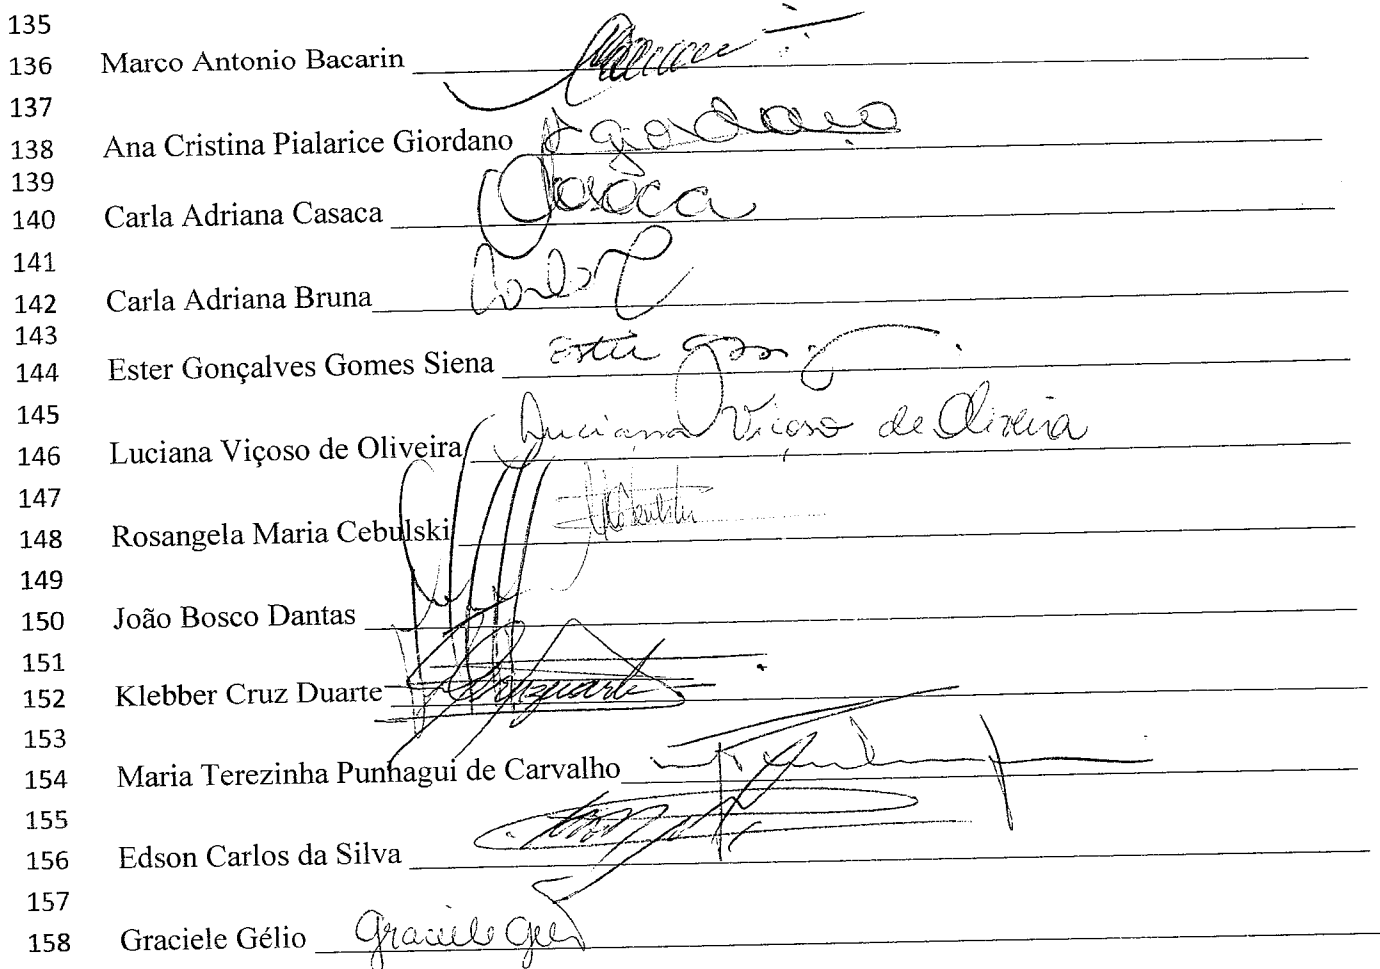 135
136 Marco Antonio Bacarin
137
138 Ana Cristina Pialarice Giordano A Giordano
139
140 Carla Adriana Casaca Casaca
141
142 Carla Adriana Bruna Carla
143
144 Ester Gonçalves Gomes Siena Ester
145
146 Luciana Viçoso de Oliveira Luciana Viçoso de Oliveira
147
148 Rosangela Maria Cebulski
149
150 João Bosco Dantas
151
152 Klebber Cruz Duarte
153
154 Maria Terezinha Punhagui de Carvalho
155
156 Edson Carlos da Silva
157
158 Graciele Gélio Graciele